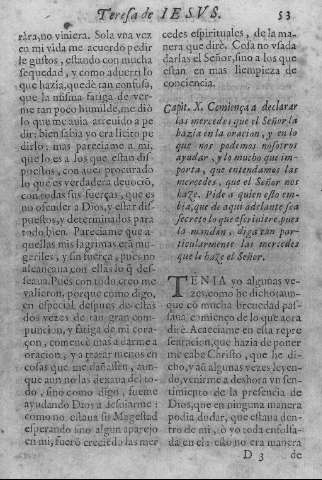 Teresa de IESVS. 53
rara, no viniera. Sola vna vez
en mi vida me acuerdo pedir
le gustos, estando con mucha
sequedad, y como aduerti lo
que hazia, quedè tan confusa,
que la misma fatiga de ver-
me tan poco humilde, me diò
lo que me auia atreuido a pe-
dir: bien sabia yo era licito pe-
dirlo; mas pareciame a mi,
que lo es a los que estan dis-
puestos, con auer procurado
lo que es verdadera deuociõ,
con todas sus fuerças, que es
no ofender a Dios, y estar dis-
puestos, y determinados para
todo bien. Pareciame que a-
quellas mis lagrimas erã mu-
geriles, y sin fuerça, pues no
alcançaua con ellas lo q̃ des-
seaua. Pues con todo creo me
valieron, porque como digo,
en especial despues destas
dos vezes de tan gran com-
puncion, y fatiga de mi cora-
çon, comencè mas a darme a
oracion, y a tratar menos en
cosas que me dañassen, aun-
que aun no las dexaua del to-
do, sino como digo, fueme
ayudando Dios a desuiarme:
como no estaua su Magestad
esperando sino algun aparejo
en mi, fuerõ creciẽdo las mer
cedes espirituales, de la ma-
nera que dirè. Cosa no vsada
darlas el Señor, sino a los que
estan en mas limpieza de
conciencia.
Capit. X. Comiença a declarar
las mercedes que el Señor la
hazia en la oracion, y en lo
que nos podemos nosotros
ayudar, y lo mucho que im-
porta, que entendamos las
mercedes, que el Señor nos
haze. Pide a quien esto em-
bia, que de aqui adelante sea
secreto lo que escriuiere, pues
la mandan, diga tan par-
ticularmente las mercedes
que la haze el Señor.
TENIA yo algunas ve-
zes, como he dicho, aun-
que cõ mucha breuedad pas-
saua, comienço de lo que aora
dirè. Acaeciame en esta repre
sentacion, que hazia de poner
me cabe Christo, que he di-
cho, y aũ algunas vezes leyen-
do, venirme a deshora vn sen-
timiento de la presencia de
Dios, que en ninguna manera
podia dudar, que estaua den-
tro de mi, ò yo toda engolfa-
da en el: esto no era manera
D 3 de